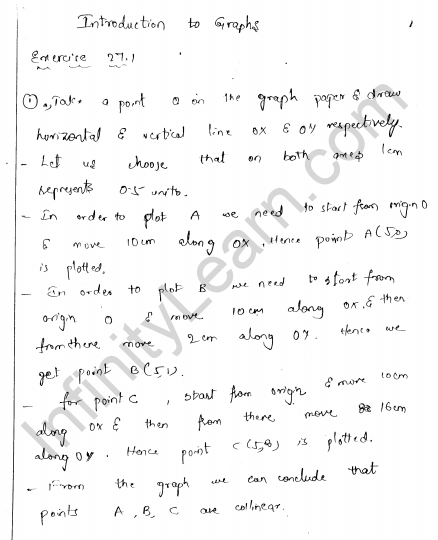 Introduction to Graphs
Exercise 27.1
① Take a point O on the graph paper & draw
horizontal & vertical line OX & OY respectively.
- Let us choose that on both axes 1cm
represents 0.5 units.
- In order to plot A we need to start from origin O
& move 10cm along OX. Hence point A(5,0)
is plotted.
- In order to plot B we need to start from
origin O & move 10cm along OX & then
from there move 2cm along OY. Hence we
get point B(5,1).
- for point C, start from origin & move 10cm
along OX & then from there move 16cm
along OY. Hence point C(5,8) is plotted.
- From the graph we can conclude that
points A, B, C are collinear.
InfinityLearn.com